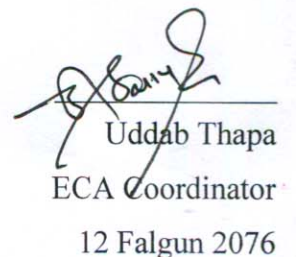 Uddab Thapa
ECA Coordinator
12 Falgun 2076